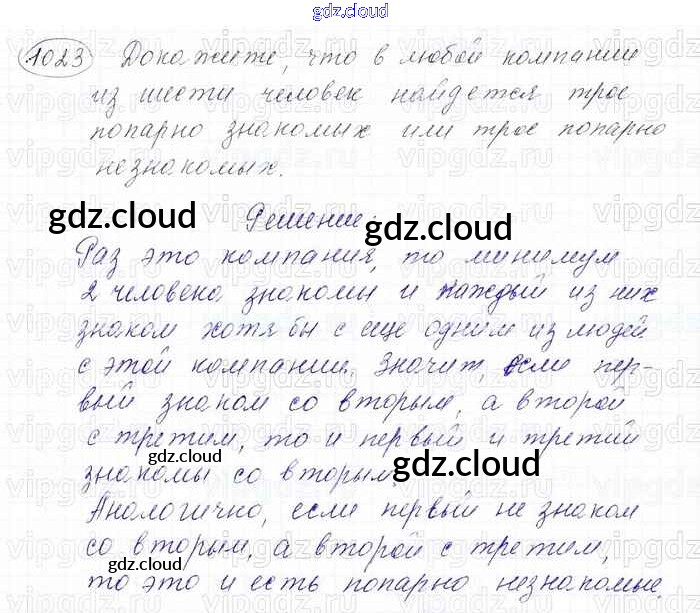 gdz.cloud
1023 Докажите, что в любой компании
из шести человек найдется трое
попарно знакомых или трое попарно
незнакомых.
gdz.cloud
Решение:
gdz.cloud
Раз это компания, то минимум
2 человека знакомы и каждый из них
знаком хотя бы с еще одним из людей
с этой компании. Значит, если пер-
вый знаком со вторым, а второй
с третим, то и первый и третий
знакомы со вторым.
gdz.cloud
gdz.cloud
Аналогично, если первый не знаком
со вторым, а второй с третим,
gdz.cloud
то это и есть попарно незнакомые.